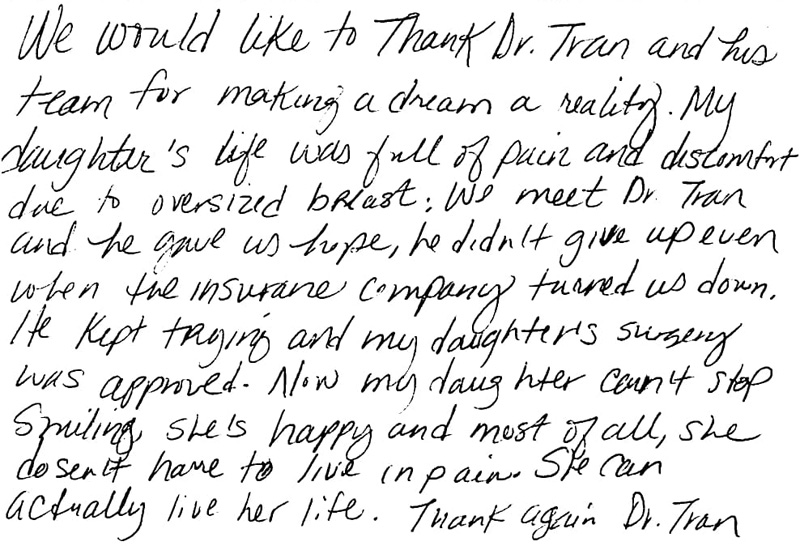 We would like to Thank Dr. Tran and his
team for making a dream a reality. My
daughter's life was full of pain and discomfort
due to oversized breast. We meet Dr. Tran
and he gave us hope, he didn't give up even
when the insurane company turned us down.
He Kept trying and my daughter's surgery
was approved. Now my daughter can't stop
Smiling, she's happy and most of all, she
dosen't have to live in pain. She can
actually live her life. Thank again Dr. Tran